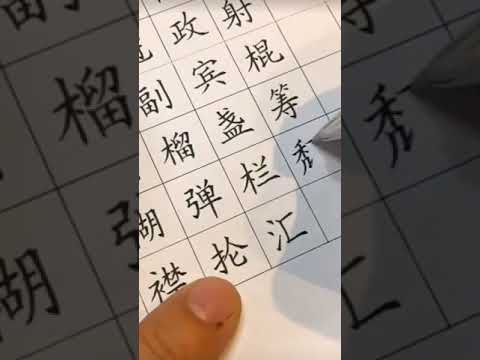 政 射
副 宾 棍
榴 盏 筹
弹 栏
襟 抡 汇